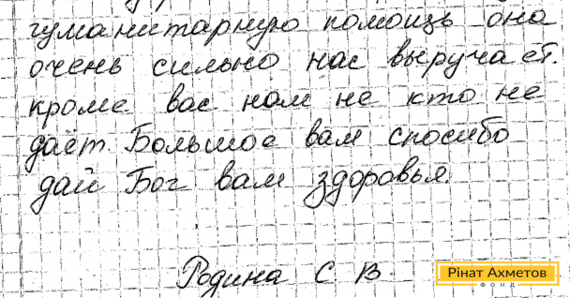 гуманитарную помощь она
очень сильно нас выручает.
кроме вас нам не кто не
даёт. Большое вам спосибо
дай Бог вам здоровья.
Родина С В
Рінат Ахметов
ФОНД